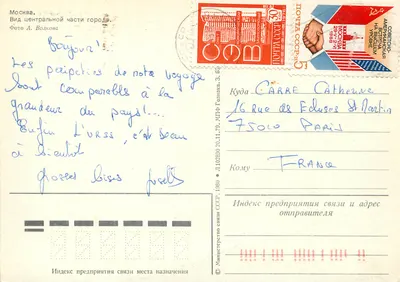 Москва.
Вид центральной части города.
Фото
Bonjour!
Les de notre voyage
sont comparables à la
grandeur du pays!....
Enfin l'URSS, c'est beau
à bientôt
grosses bises
СЭВ
ПОЧТА СССР
Куда CARRE Catherine
16 Rue des Ecluses St Martin
75010 PARIS
Кому
FRANCE
Индекс предприятия связи и адрес
отправителя
Индекс предприятия связи места назначения
© Министерство связи СССР, 1980 20.11.79. МПФ Гознака.